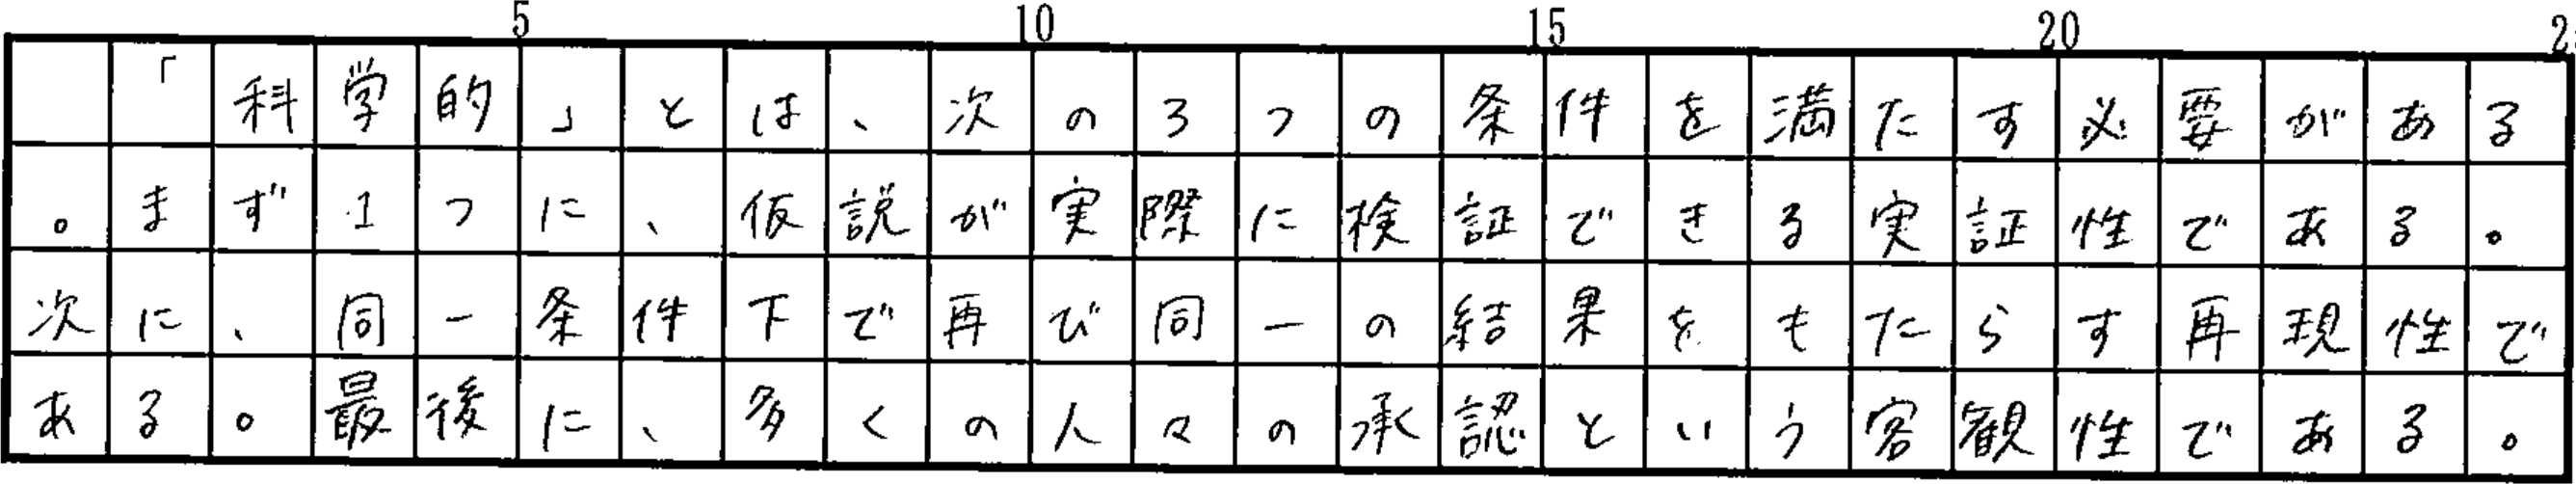 5 10 15 20 2
「科学的」とは、次の3つの条件を満たす必要がある
。まず1つに、仮説が実際に検証できる実証性である。
次に、同一条件下で再び同一の結果をもたらす再現性で
ある。最後に、多くの人々の承認という客観性である。